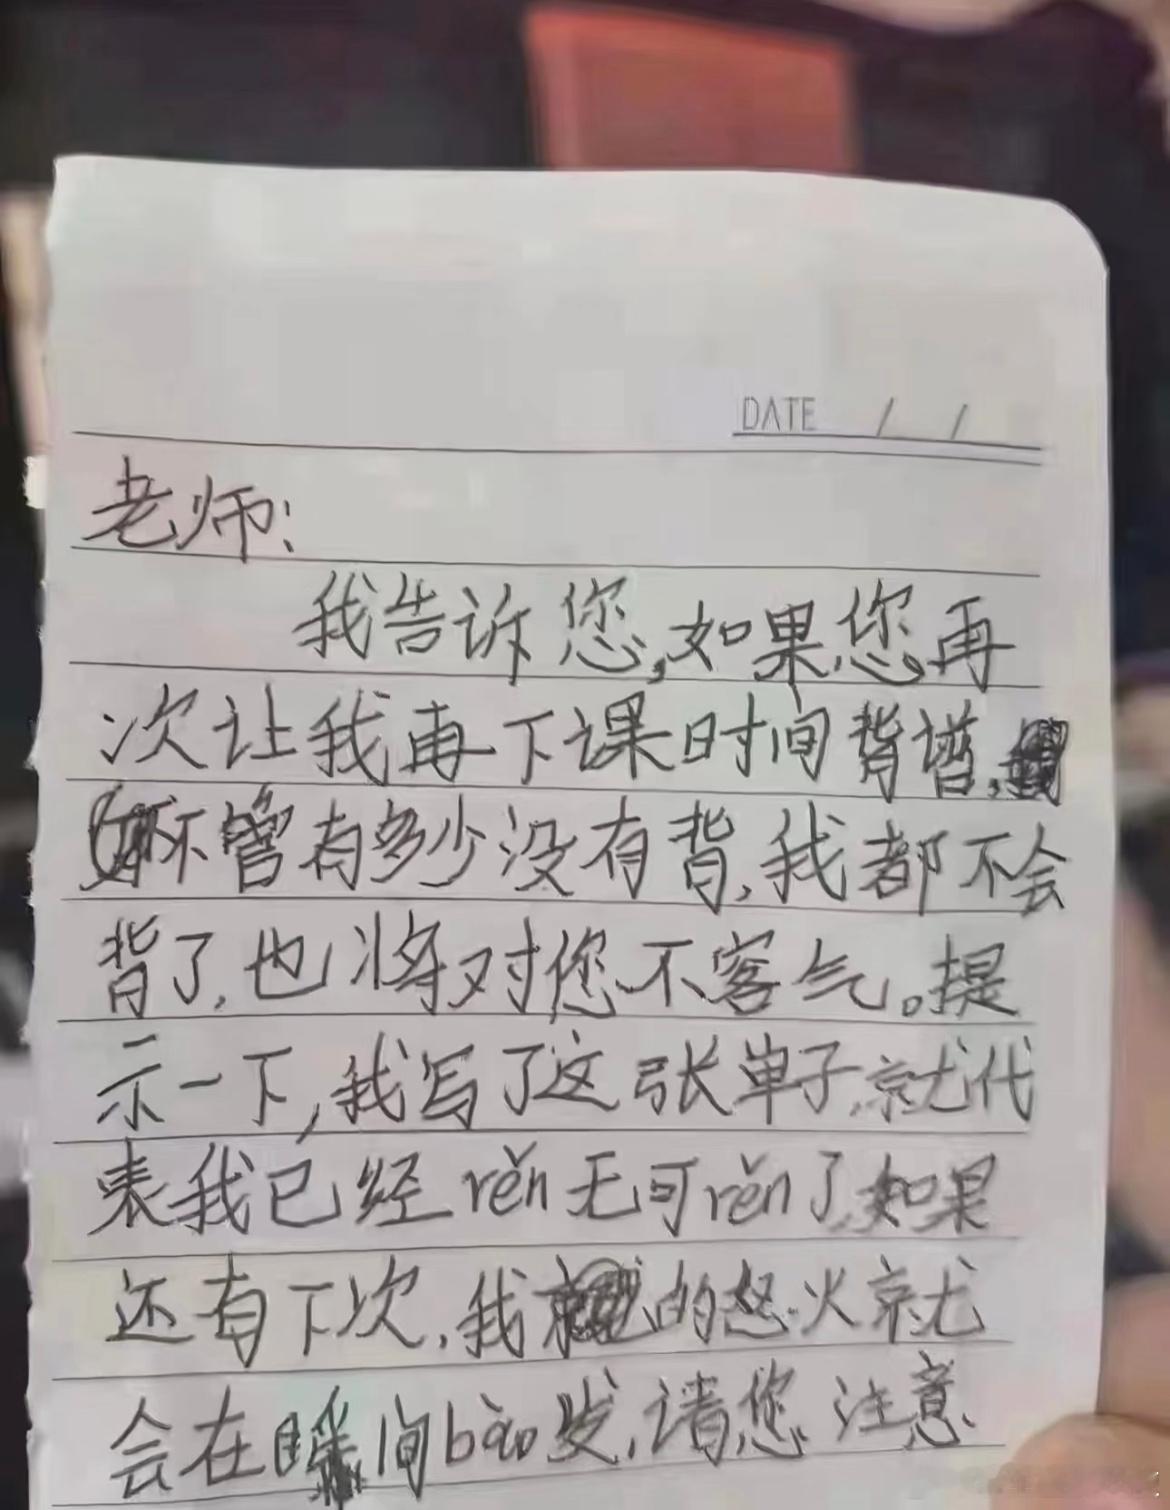 DATE / /
老师：
我告诉您，如果您再
次让我再下课时间背增，
不管有多少没有背，我都不会
背了，也将对您不客气。提
示一下，我写了这张单子，就代
表我已经rěn无可rěn了，如果
还有下次，我的怒火就
会在瞬间bào发，请您注意